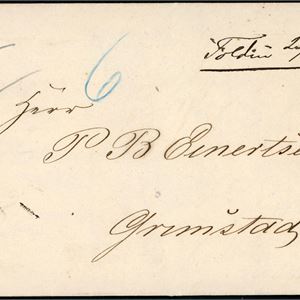 Foldin 2
6
Herr
P B Einertse
Grimstad